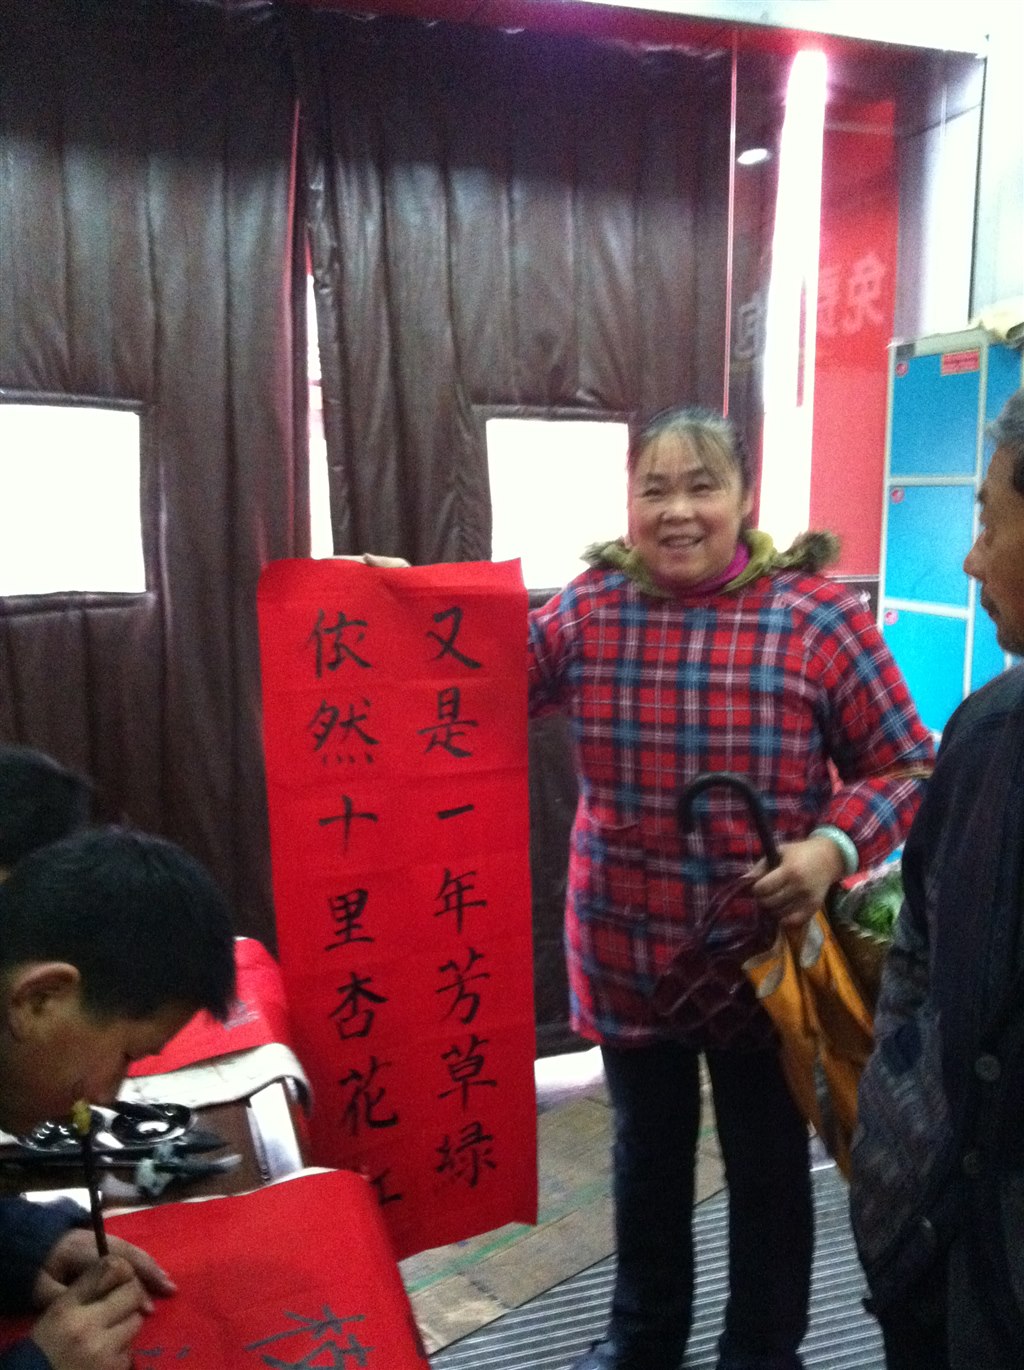 又是一年芳草绿
依然十里杏花红
免费